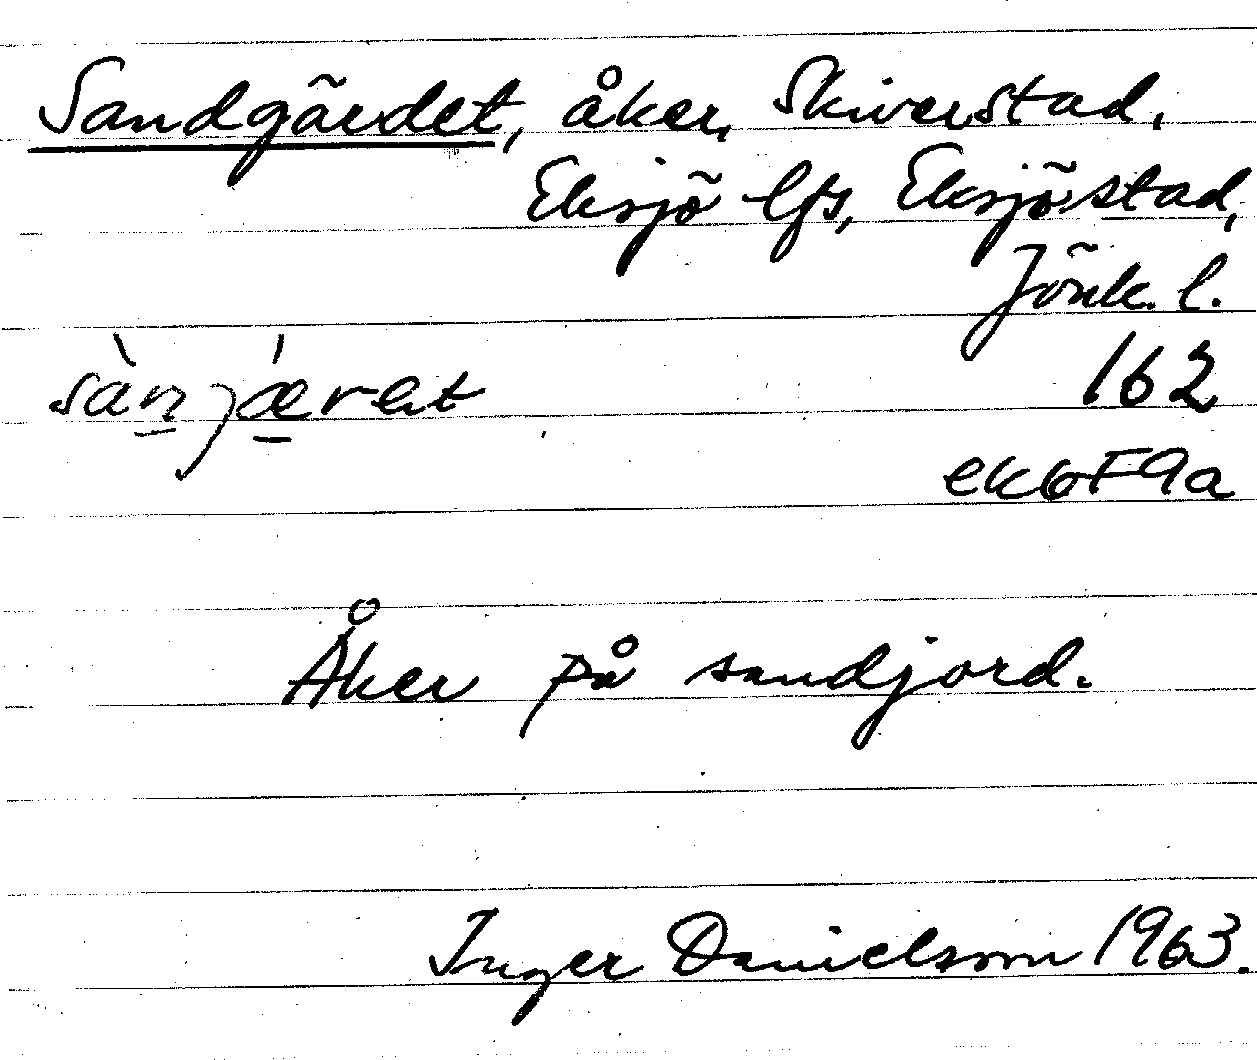 Sandgärdet, åker, Skiverstad,
Eksjö lfs, Eksjö stad,
Jönk. l.
sàn̲jǽ̲ret
162
ek6F9a
Åker på sandjord.
Inger Danielsson 1963.